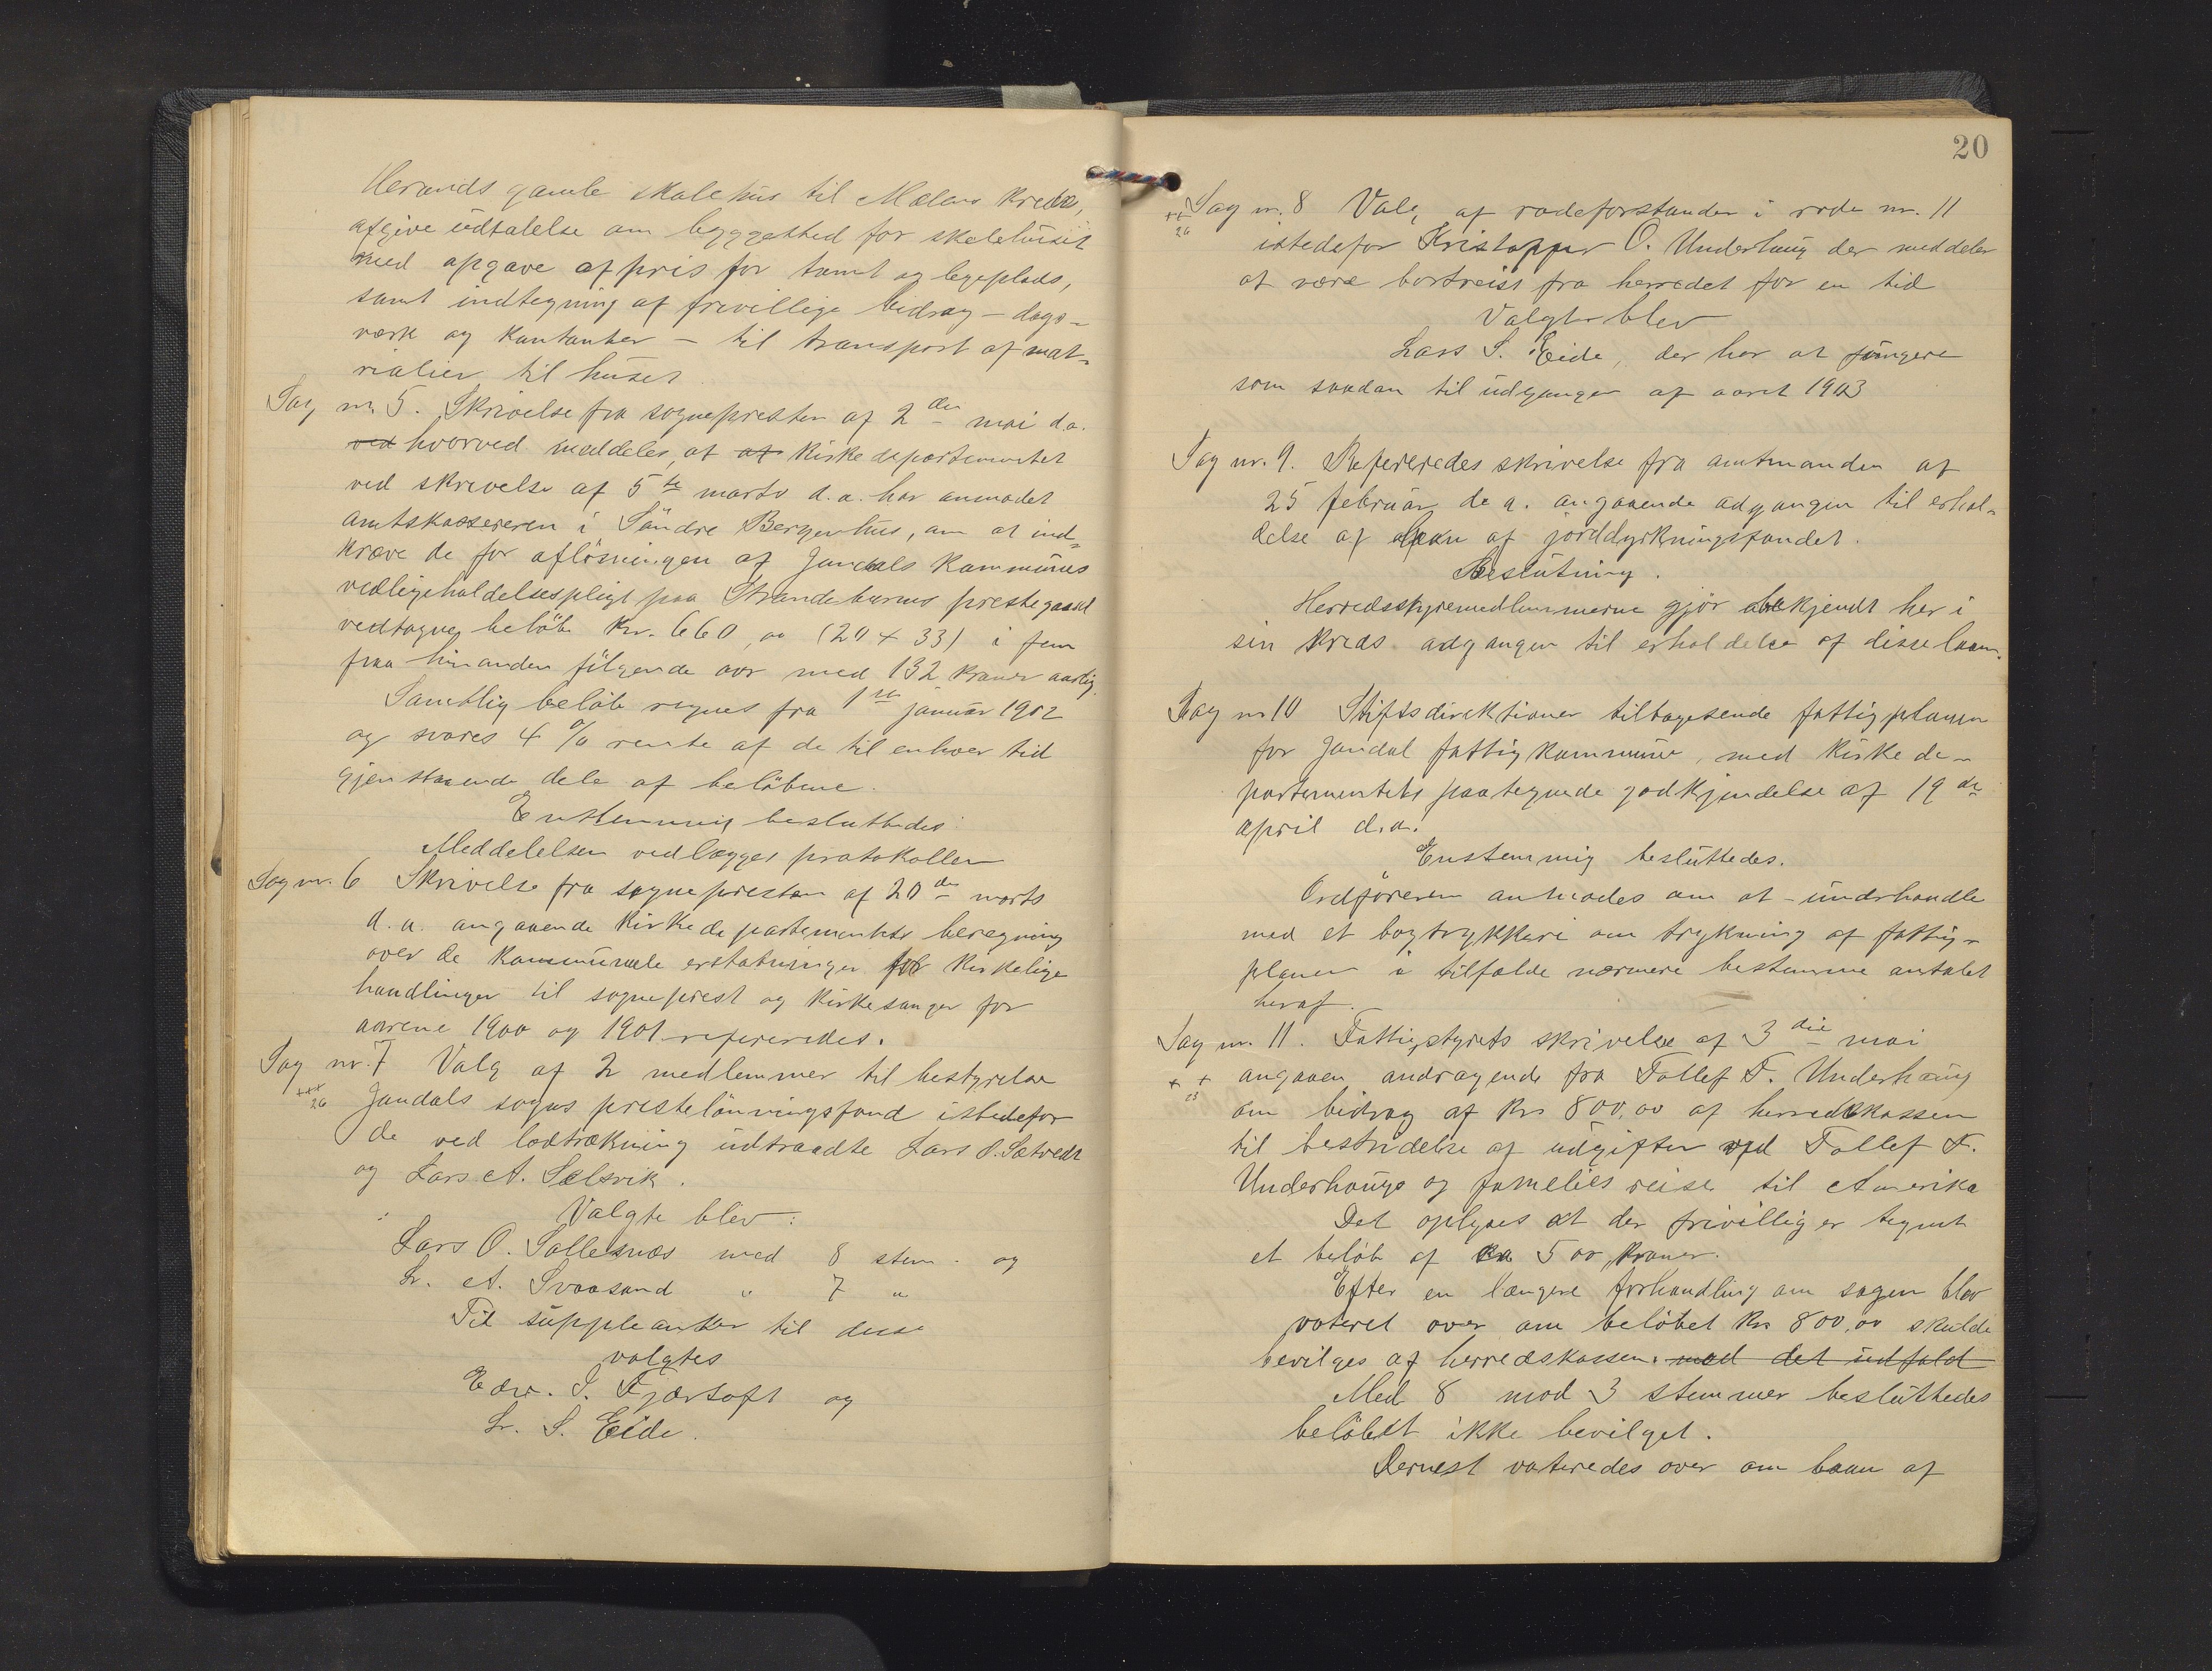 Herands gamle skolehus til Mælens kreds,
afgive udtalelse om byggested for skolehuset
med opgave af pris for tomt og legeplads,
samt indtegning af frivillige bidrag – dags-
værk og kontanter – til transport af mat-
rialier til huset.
Sag nr. 5. Skrivelse fra sognepresten af 2den mai d.a.
ved hvorved meddeles, at at Kirkedepartementet
ved skrivelse af 5te marts d.a. har anmodet
amtskassereren i Söndre Bergenhus, om at ind-
kræve de for aflösningen af Jondals kommunes
vedligeholdelsespligt paa Strandebarms prestegaard
vedtagne belöb kr. 660,00 (20 × 33) i fem
paa hinanden fölgende aar med 132 kroner aarlig.
Samtlig belöb regnes fra 1ste januar 1902
og svares 4 % rente af de til enhver tid
gjenstaaende dele af belöbene.
Enstemmig besluttedes:
Meddelelsen vedlægges protokollen
Sag nr. 6 Skrivelse fra sognepresten af 20de marts
d.a. angaaende Kirkedepartementets beregning
over de kommunale erstatninger for kirkelige
handlinger til sogneprest og kirkesanger for
aarene 1900 og 1901 refereredes.
Sag nr. 7 Valg af 2 medlemmer til bestyrelse
+++
26
Jondals sogns prestelönningsfond istedefor
de ved lodtrækning udtraadte Lars O. Sætvedt
og Lars A. Selsvik.
Valgte blev:
Lars O. Sollesnæs med 8 stem. og
L. A. Svaasand " 7 "
Til suppleanter til disse
valgtes
Edv. J. Fjærtoft og
L. S. Eide.
20
Sag nr. 8 Valg af rodeforstander i rode nr. 11
++
26
istedefor Kristoffer O. Underhaug der meddeler
at være bortreist fra herredet for en tid
Valgte blev
Lars S. Eide, der har at fungere
som saadan til udgangen af aaret 1903
Sag nr. 9. Refereredes skrivelse fra amtmanden af
25 februar d. a. angaaende adgangen til erhol-
delse af laan af jorddyrkningsfondet.
Beslutning.
Herredsstyremedlemmerne gjör bekjendt her i
sin kreds adgangen til erholdelse af disse laan.
Sag nr 10 Stiftsdirektionen tilbagesende fattigplanen
for Jondal fattigkommune, med Kirkede-
partementets paategnede godkjendelse af 19de
april d.a.
Enstemmig besluttedes.
Ordföreren anmodes om at underhandle
med et bogtrykkeri om trykning af fattig-
planen i tilfælde nærmere bestemme antalet
heraf.
Sag nr. 11. Fattigstyrets skrivelse af 3die mai
+ +
23
angaaen andragende fra Tollef T. Underhaug
om bidrag af kr 800,00 af herredskassen
til bestridelse af udgifter ved Tollef T.
Underhaugs og families reise til Amerika
Det oplyses at der frivillig er tegnet
et belöb af ca 500 kroner.
Efter en længere forhandling om sagen blev
voteret over om belöbet kr 800,00 skulde
bevilges af herredskassen. med det udfald
Med 8 mod 3 stemmer besluttedes
belöbet ikke bevilget.
Dernest voteredes over om laan af